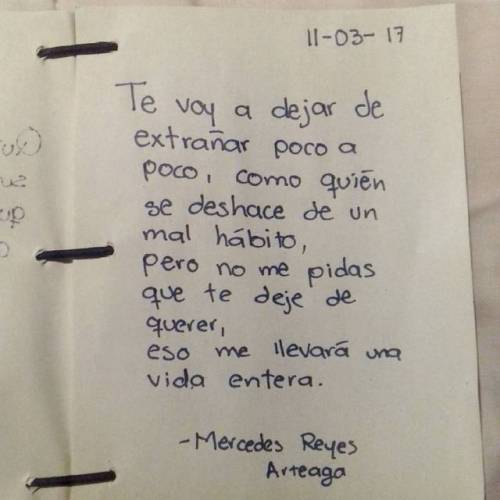 11-03-17
Te voy a dejar de
extrañar poco a
poco, como quién
se deshace de un
mal hábito,
pero no me pidas
que te deje de
querer,
eso me llevará una
vida entera.
-Mercedes Reyes
Arteaga